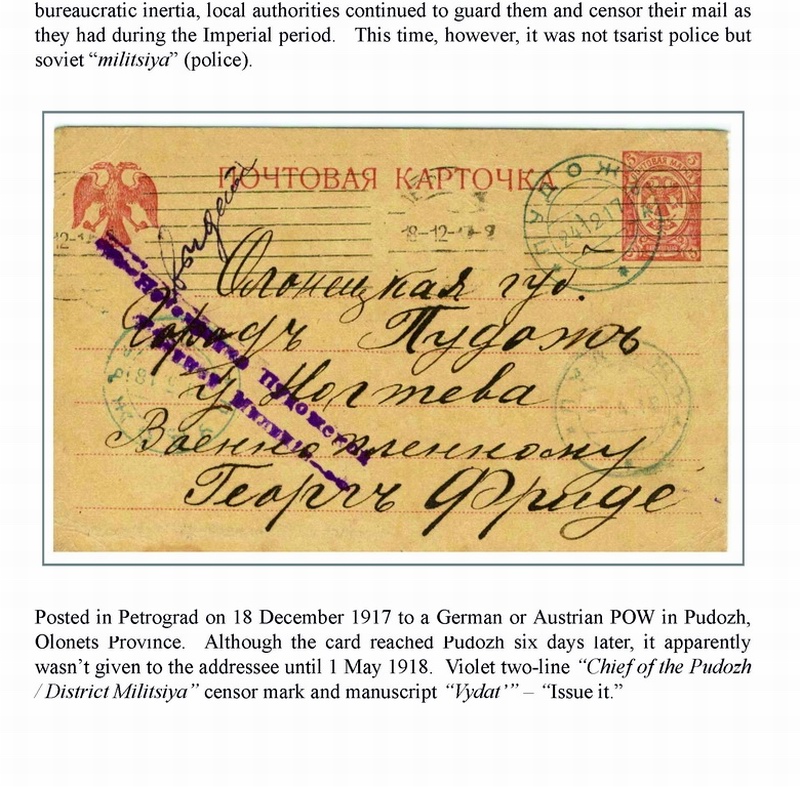 bureaucratic inertia, local authorities continued to guard them and censor their mail as
they had during the Imperial period. This time, however, it was not tsarist police but
soviet “militsiya” (police).
ПОЧТОВАЯ КАРТОЧКА
18-12-
ПУДОЖЪ
24 12 17
Олонецкая губ.
Городъ Пудожъ
у Ногтева
Военнопленному
Георгъ Фриде
Posted in Petrograd on 18 December 1917 to a German or Austrian POW in Pudozh,
Olonets Province. Although the card reached Pudozh six days later, it apparently
wasn’t given to the addressee until 1 May 1918. Violet two-line “Chief of the Pudozh
/ District Militsiya” censor mark and manuscript “Vydat’” – “Issue it.”